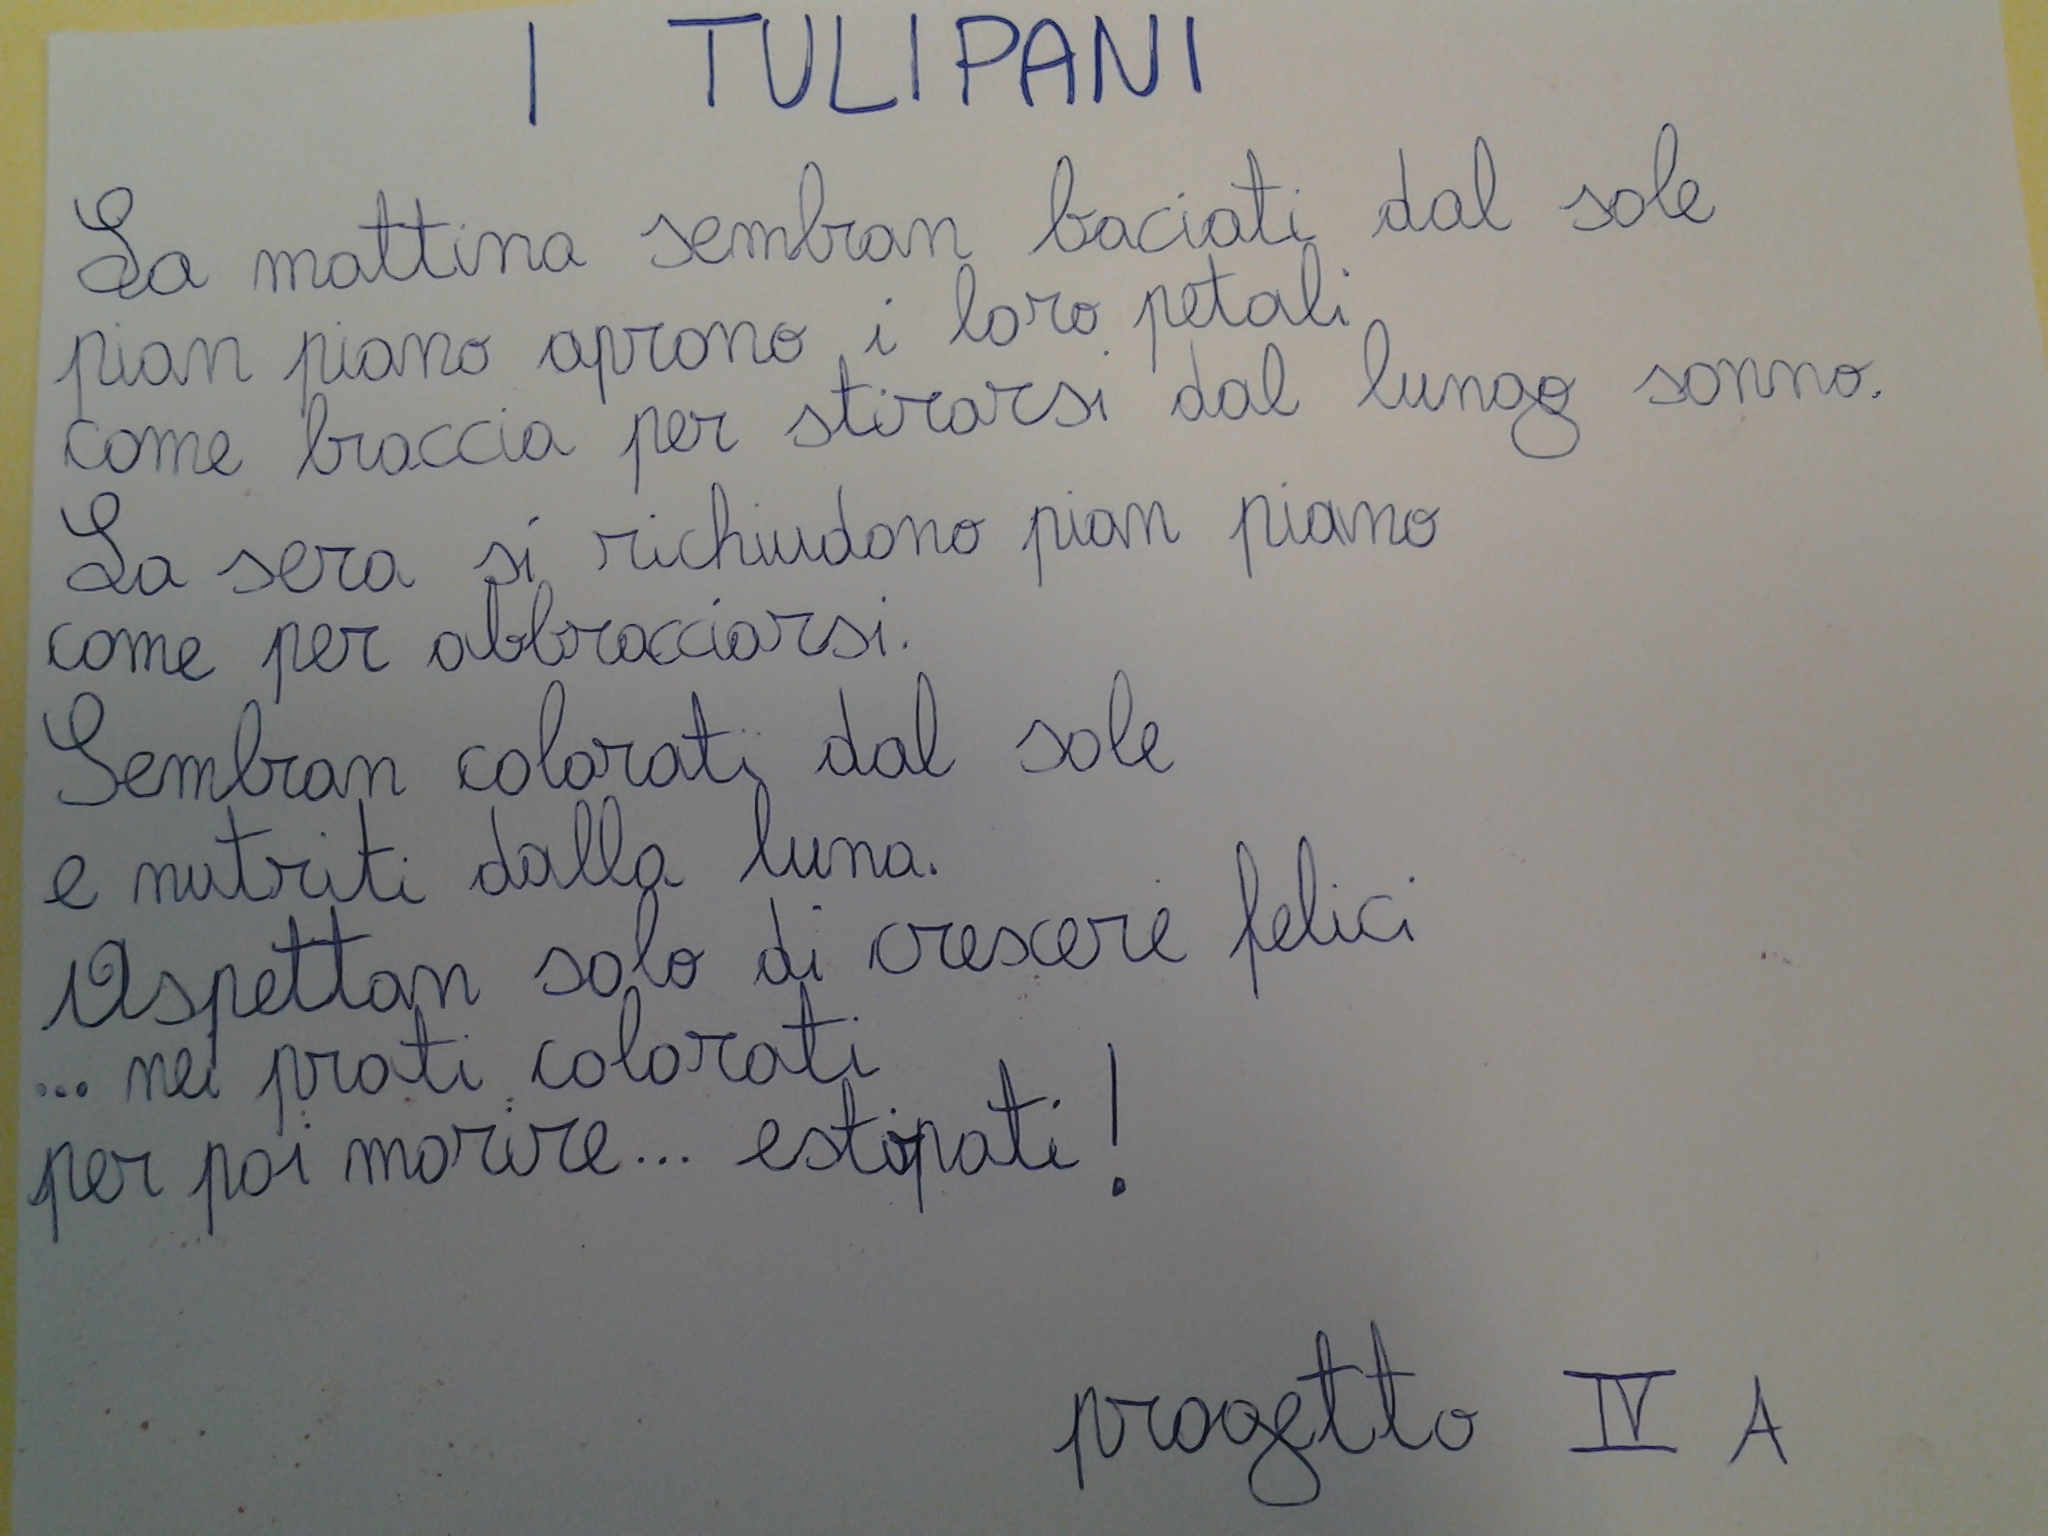 I TULIPANI
La mattina sembran baciati dal sole
pian piano aprono i loro petali
come braccia per stirarsi dal lungo sonno.
La sera si richiudono pian piano
come per abbracciarsi.
Sembran colorati dal sole
e nutriti dalla luna.
Aspettan solo di crescere felici
... nei prati colorati
per poi morire... estipati!
progetto IV A